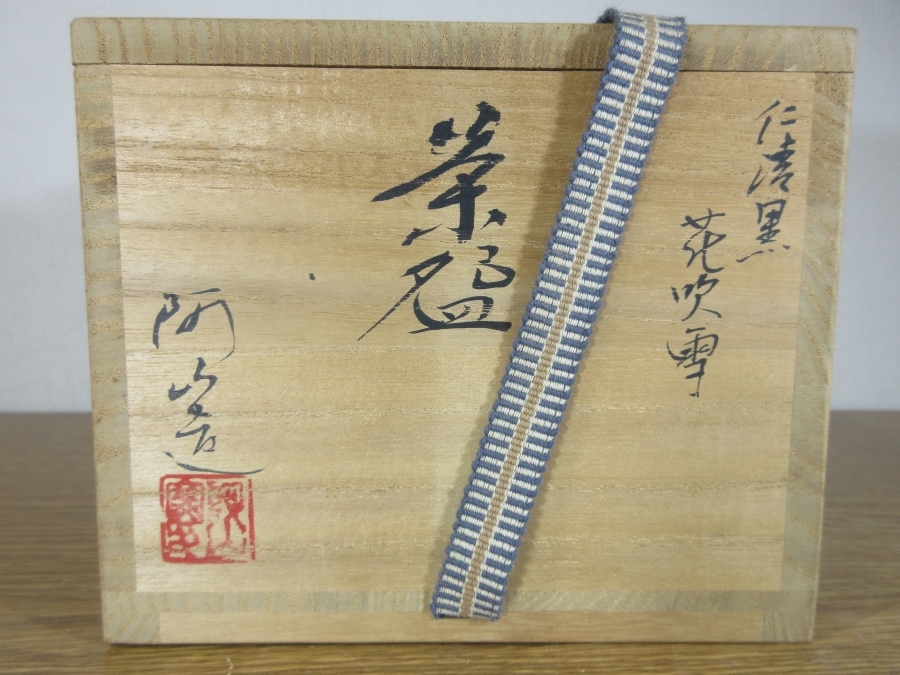 仁清黒
花吹雪
茶碗
阿山造